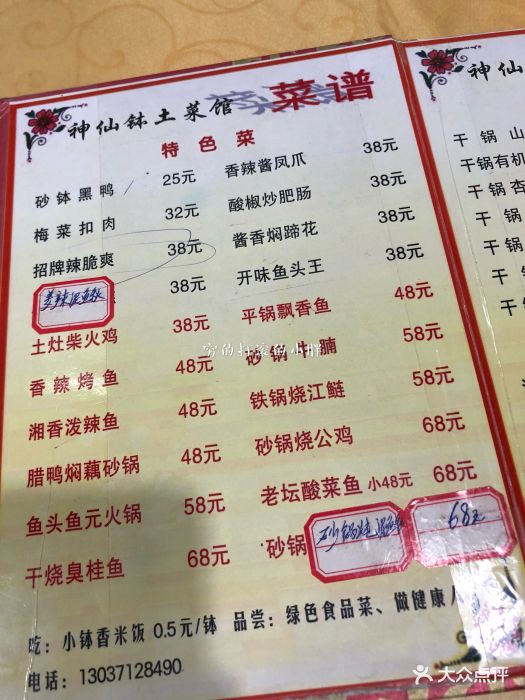 神仙钵土菜馆 菜谱
特色菜
砂钵黑鸭 25元 香辣酱凤爪 38元
梅菜扣肉 32元 酸椒炒肥肠 38元
招牌辣脆爽 38元 酱香焖蹄花 38元
38元 开味鱼头王 38元
土灶柴火鸡 38元 平锅飘香鱼 48元
香辣烤鱼 48元 砂锅牛腩 58元
湘香泼辣鱼 48元 铁锅烧江鲢 58元
腊鸭焖藕砂锅 48元 砂锅烧公鸡 68元
鱼头鱼元火锅 58元 老坛酸菜鱼 小48元 68元
干烧臭桂鱼 68元 砂锅 68元
吃：小钵香米饭 0.5元/钵 品尝：绿色食品菜、做健康人
电话：13037128490
神仙
干锅山
干锅有机
干锅杏
干锅
干锅
干锅
穷的打滚的小胖
大众点评